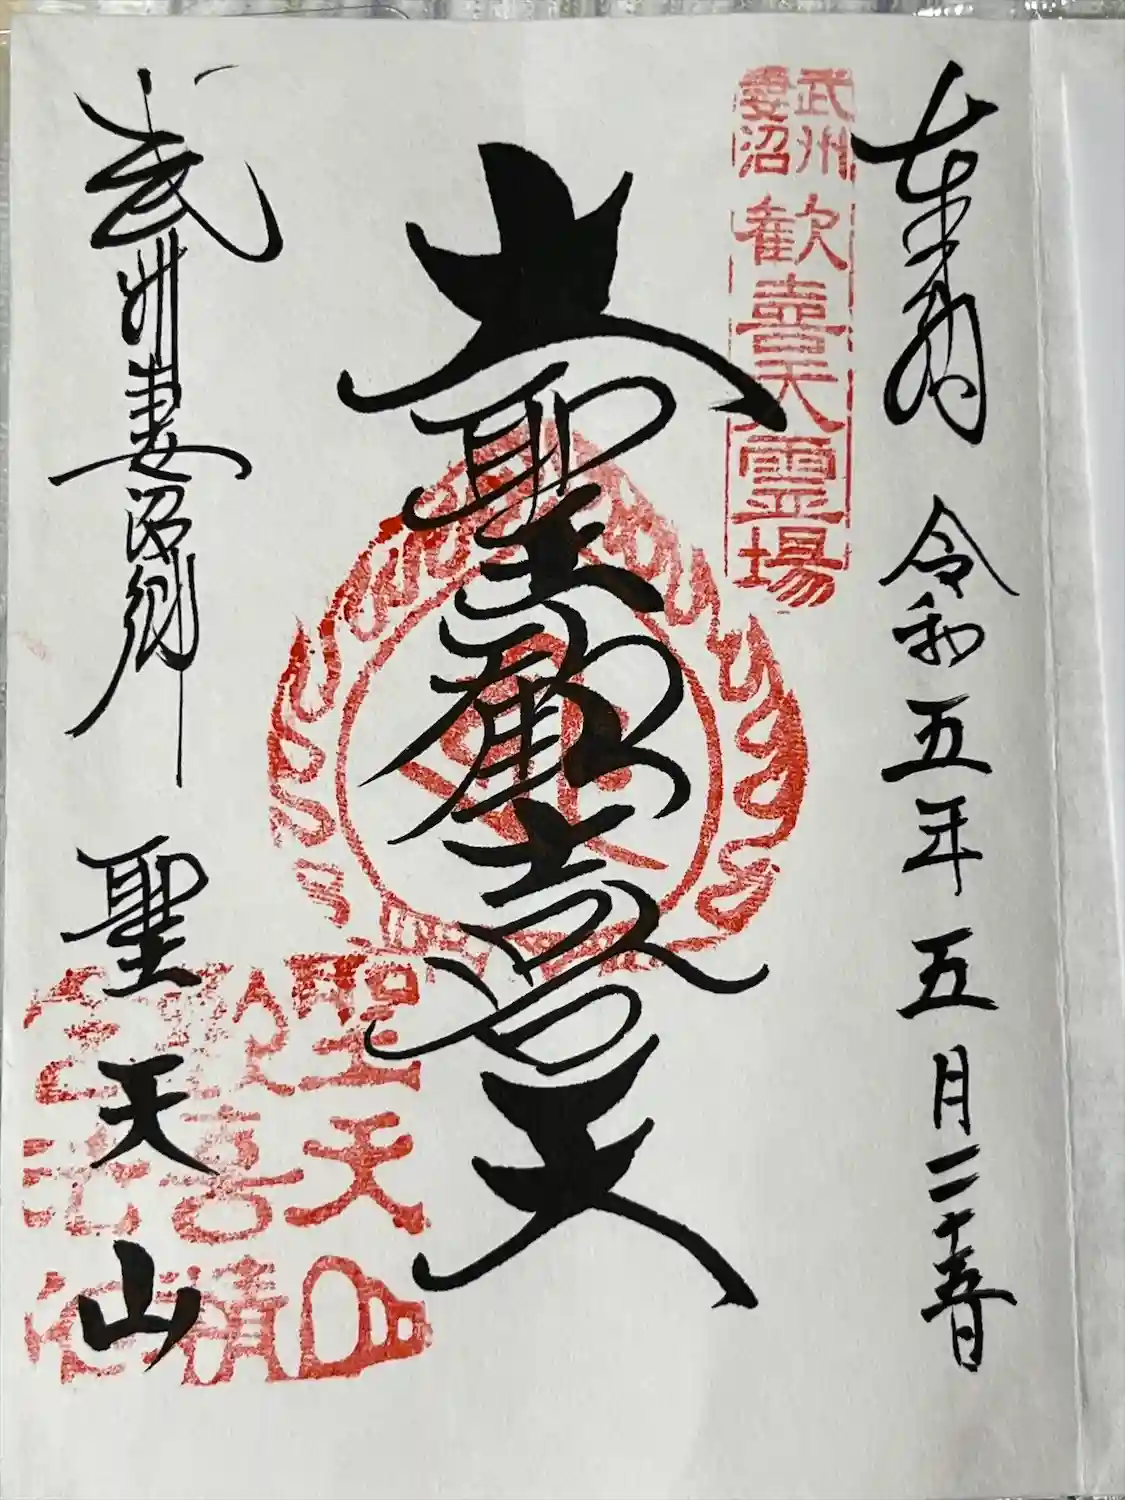 奉拝 令和五年五月二十五日
武州
妻沼
歓喜天霊場
大聖歓喜天
武州妻沼郷 聖天山
聖天山